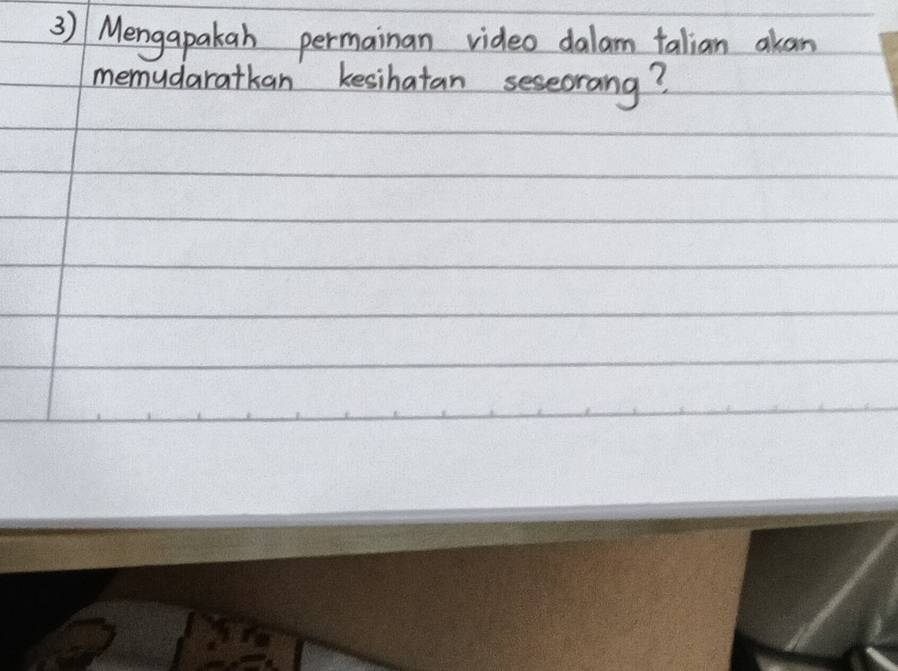 3) Mengapakah permainan video dalam talian akan
memudaratkan kesihatan seseorang?